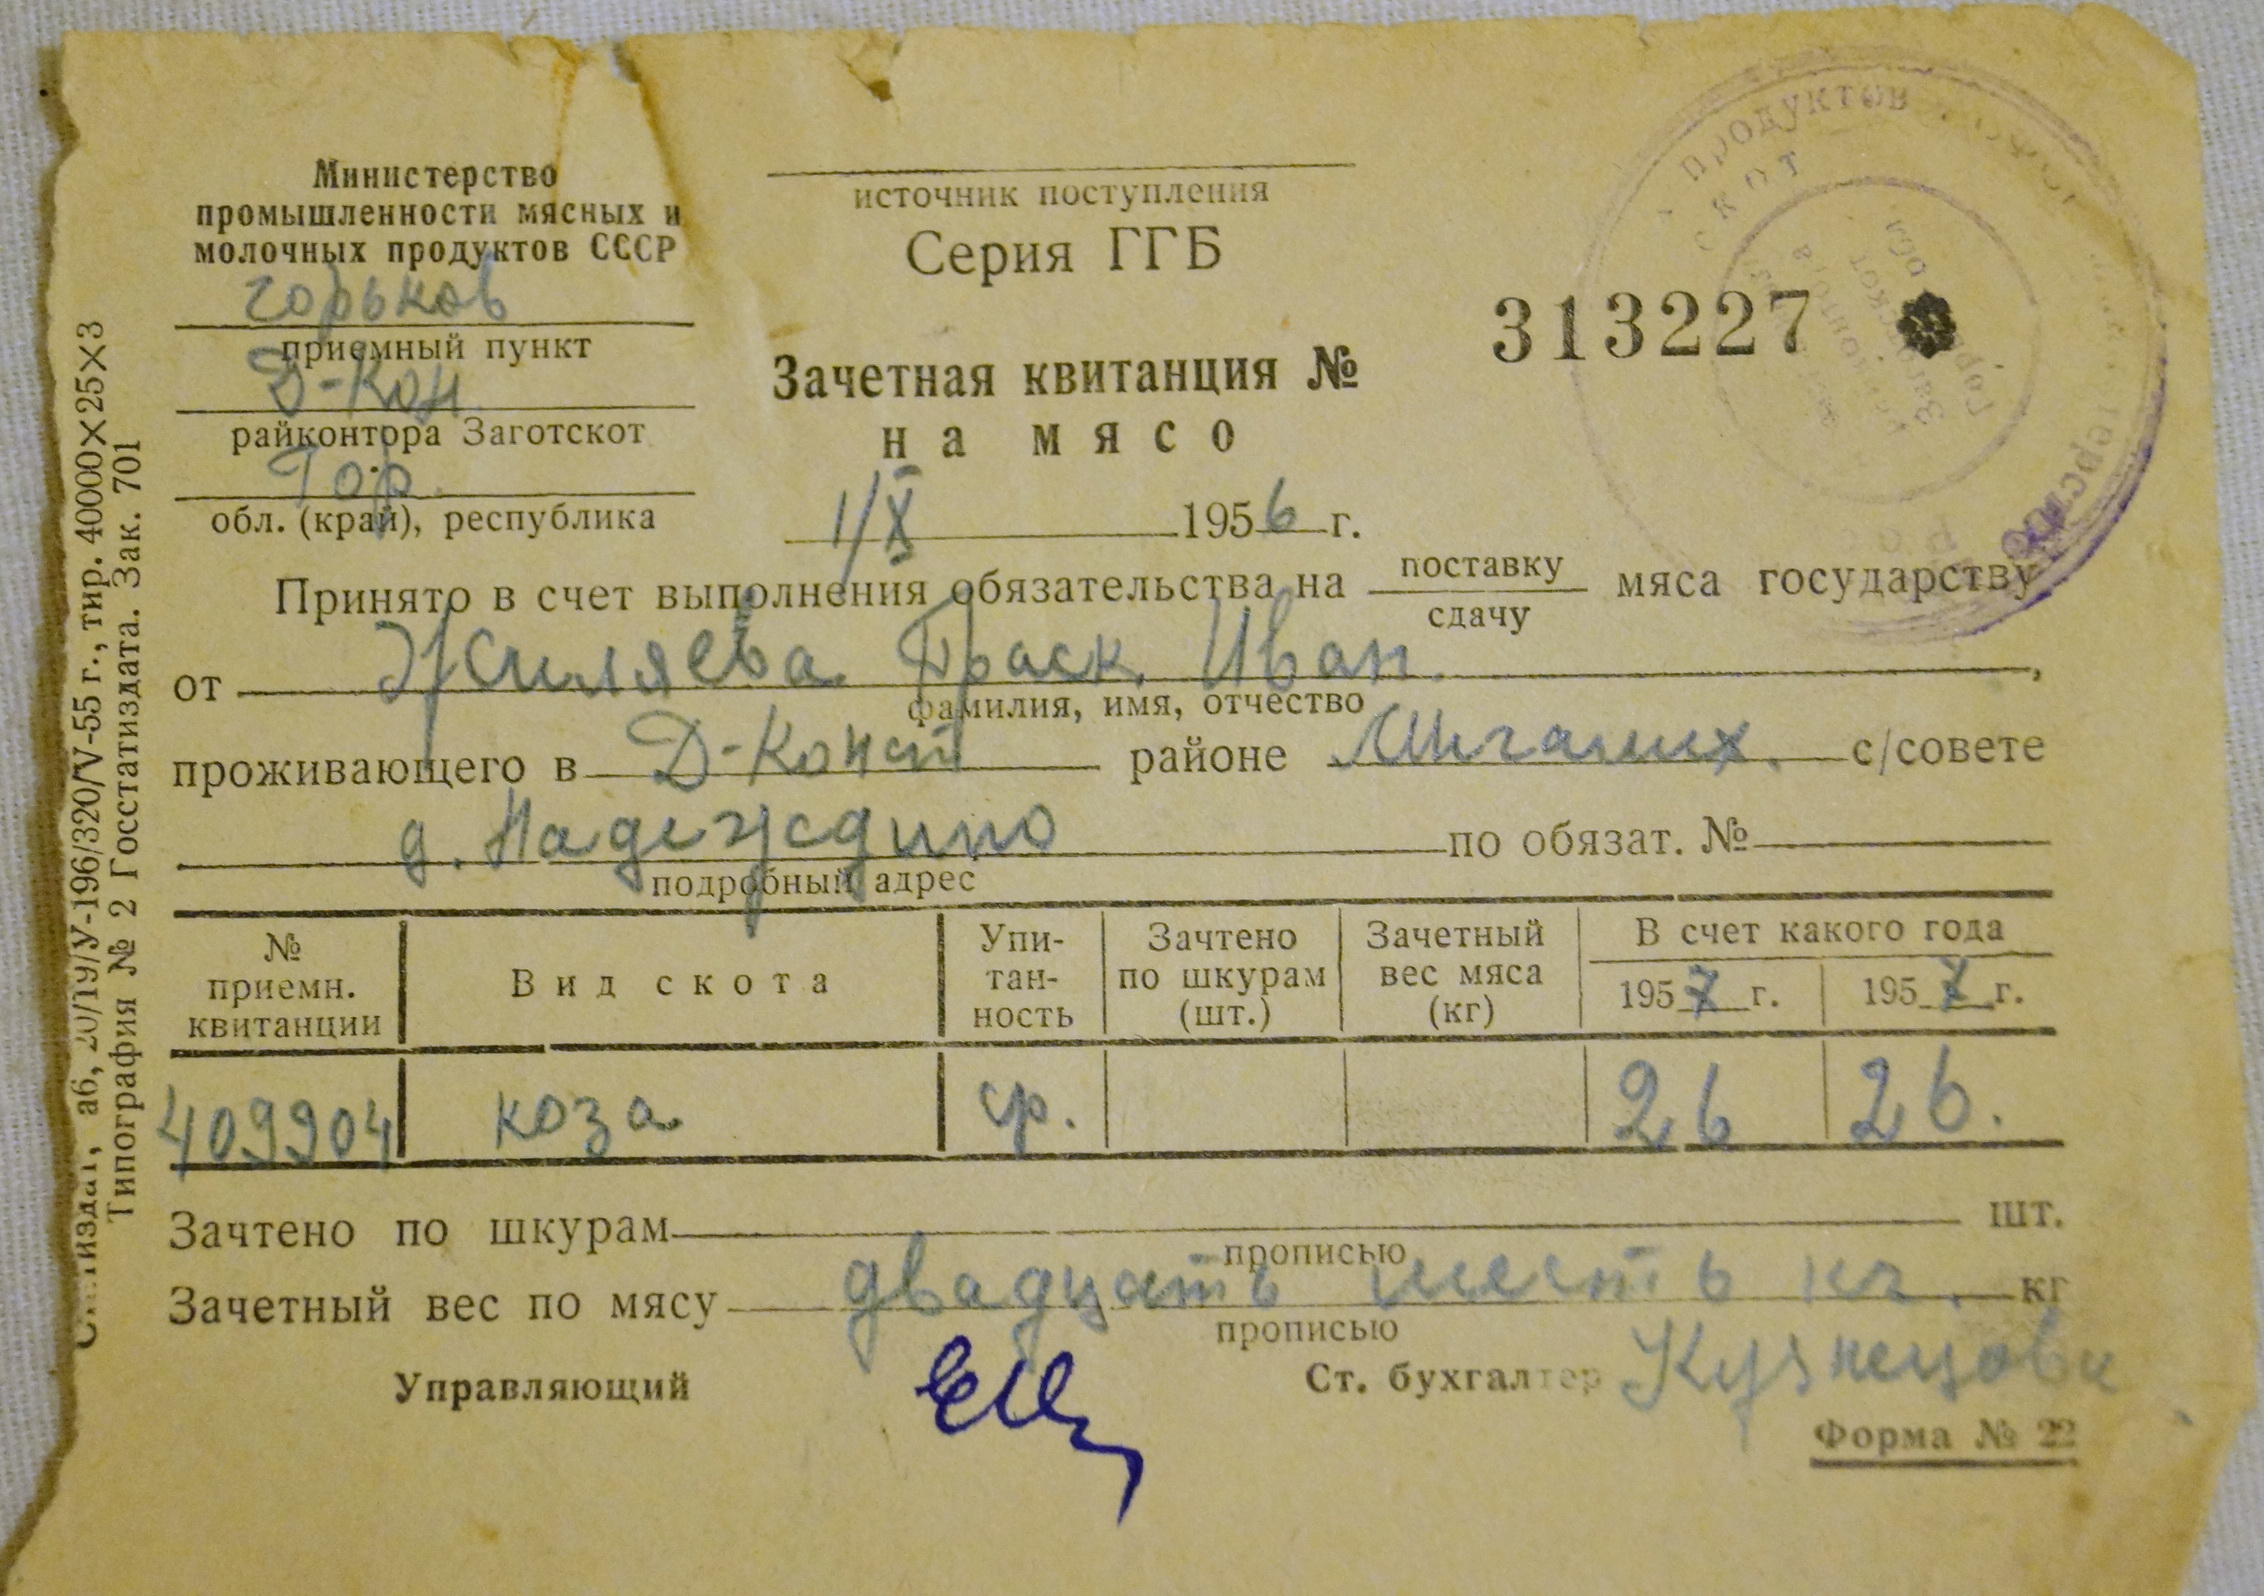 Министерство
промышленности мясных и
молочных продуктов СССР
Горьков
приемный пункт
Д-Кон
райконтора Заготскот
Гор.
обл. (край), республика
источник поступления
Серия ГГБ
Зачетная квитанция № 313227
на мясо
1/X 1956 г.
ПРОДУКТОВ
СКОТ
Принято в счет выполнения обязательства на поставку мяса государству
сдачу
от Жиляева Праск Иван.,
фамилия, имя, отчество
проживающего в Д-Конст районе с/совете
д. Надеждино по обязат. №
подробный адрес
№ приемн. квитанции Вид скота Упи-тан-ность Зачтено по шкурам (шт.) Зачетный вес мяса (кг) В счет какого года
1957 г. 1957 г.
409904 коза ср. 26 26.
Зачтено по шкурам шт.
прописью
Зачетный вес по мясу двадцать шесть кг. кг
прописью
Управляющий Ст. бухгалтер Кузнецова
Форма № 22
аб, 20/19/У-196/320/V-55 г., тир. 40000×25×3
Типография № 2 Госстатиздата. Зак. 701